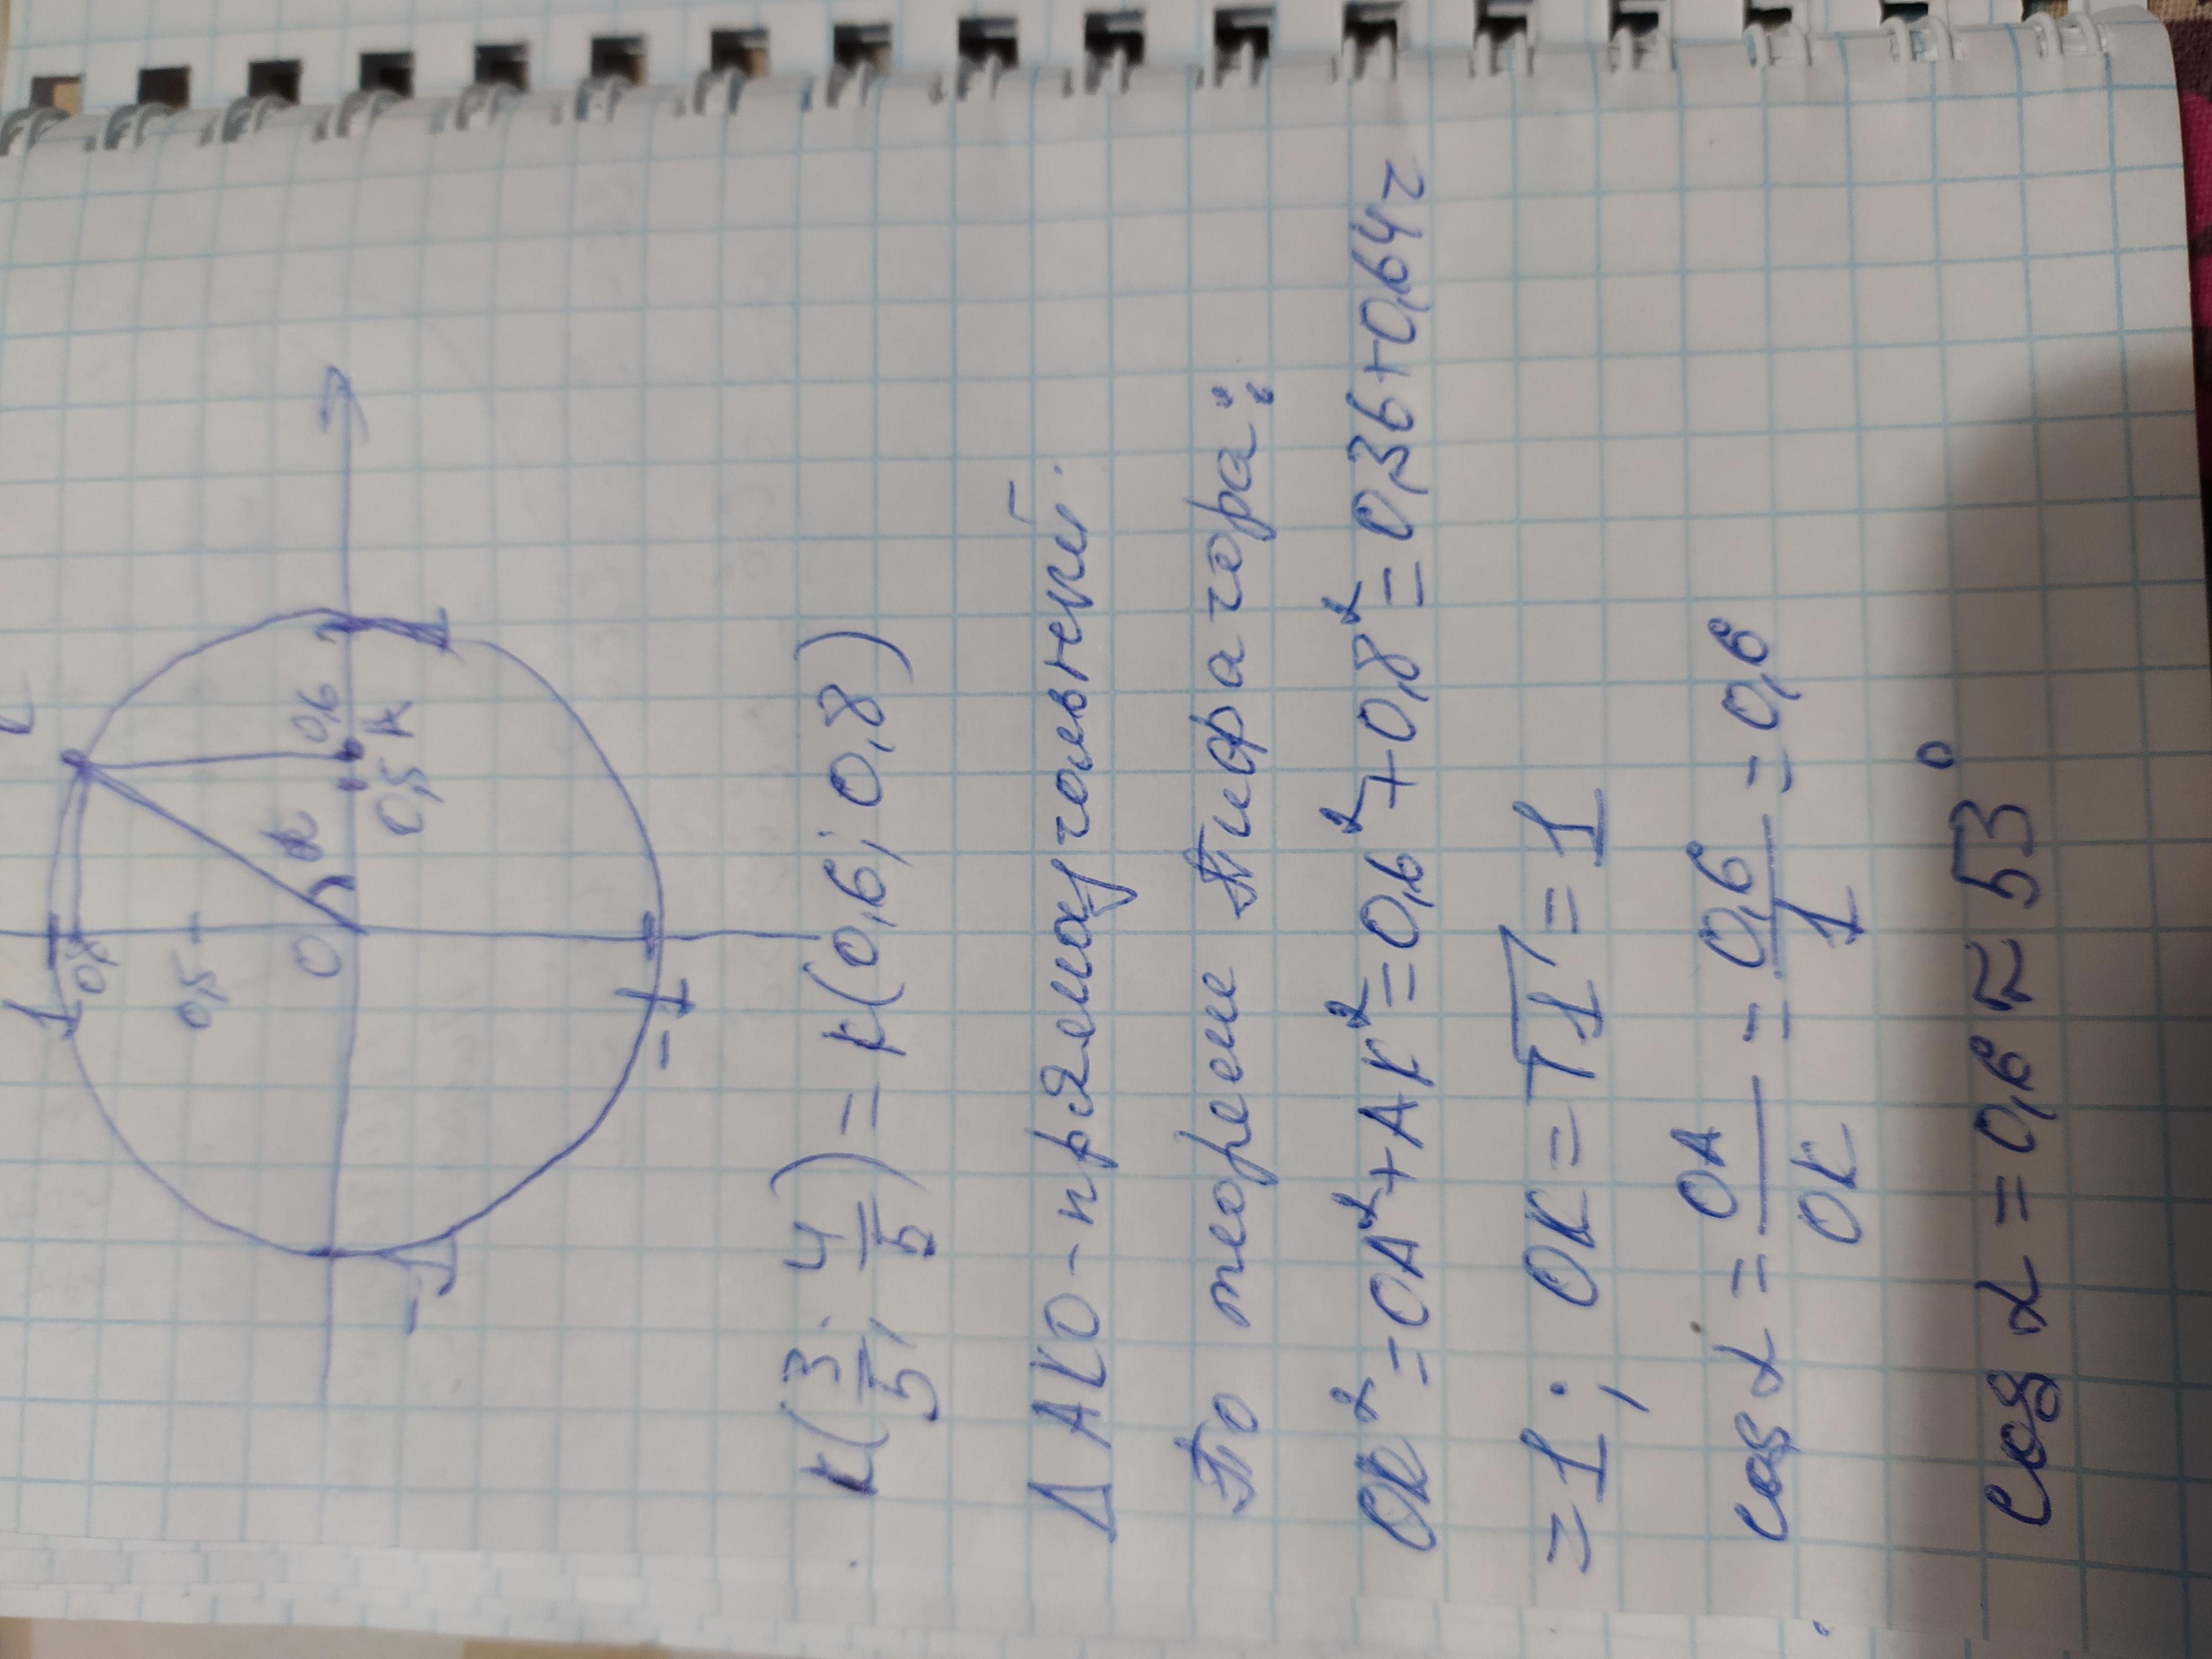 1
0,8
0,5
0
α
0,6
0,5
A
1
-1
-1
K(3/5; 4/5) = K(0,6; 0,8)
Δ AKO - прямоугольный.
По теореме Пифагора:
OK² = OA² + AK² = 0,6² + 0,8² = 0,36 + 0,64 =
= 1; OK = √1 = 1
cos α = OA/OK = 0,6/1 = 0,6
cos α = 0,6 ≈ 53°